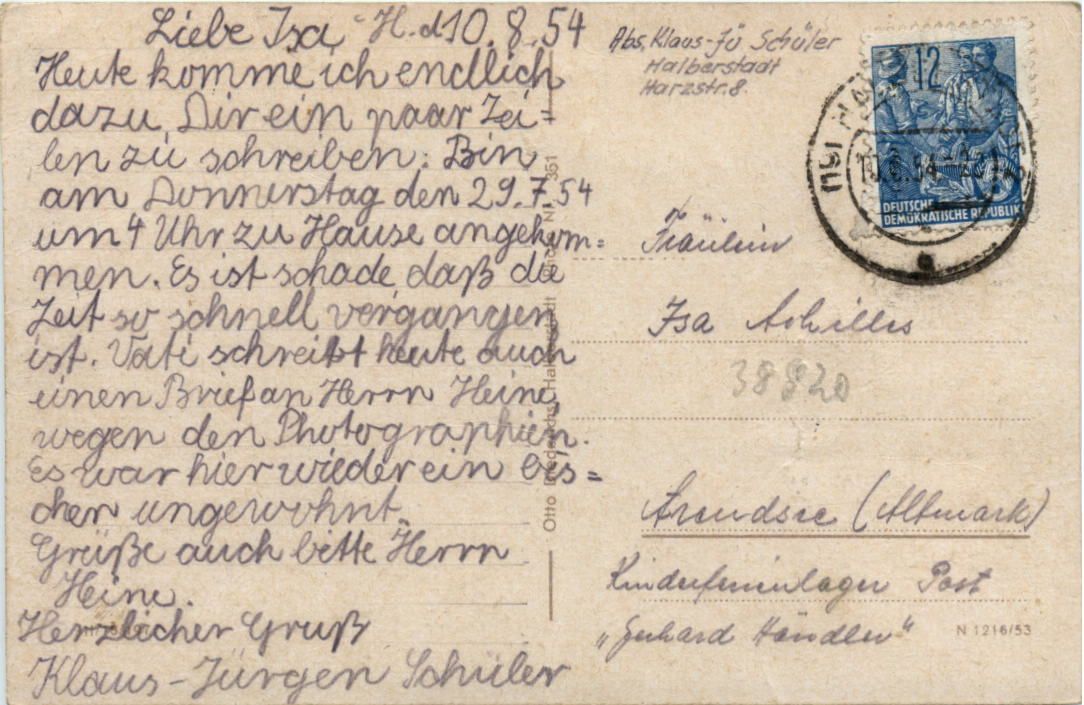 Liebe Isa, H. d 10.8.54
Heute komme ich endlich
dazu, Dir ein paar Zei=
len zu schreiben. Bin
am Donnerstag den 29.7.54
um 4 Uhr zu Hause angekom=
men. Es ist schade daß die
Zeit so schnell vergangen
ist. Vati schreibt heute auch
einen Brief an Herrn Heine,
wegen den Photographien.
Es war hier wieder ein bis=
chen ungewohnt.
Grüße auch bitte Herrn
Heine.
Herzlicher Gruß
Klaus-Jürgen Schüler
Otto Halberstadt
351
Abs. Klaus-Jü Schüler
Halberstadt
Harzstr. 8.
12
DEUTSCHE
DEMOKRATISCHE REPUBLIK
Fräulein
Isa Achilles
38920
Arendsee (Altmark)
Kinderferienlager Post
„Gerhard Händler"
N 1216/53